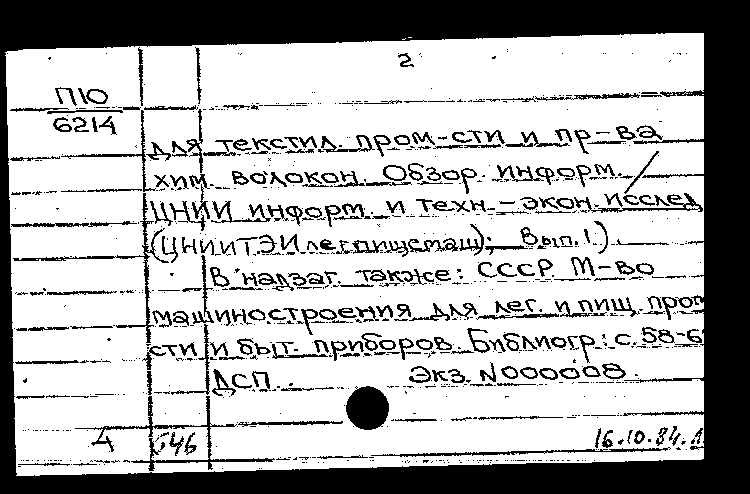 2
ПЮ
6214
для текстил. пром-сти и пр-ва
хим. волокон. Обзор. информ. /
ЦНИИ информ. и техн.-экон. исслед.
(ЦНИИТЭИлегпищемаш); Вып. 1).
В надзаг. также: СССР. М-во
машиностроения для лег. и пищ. пром
сти и быт. приборов. Библиогр.: с. 58-6
ДСП. Экз. N000008.
4 646 16.10.84.